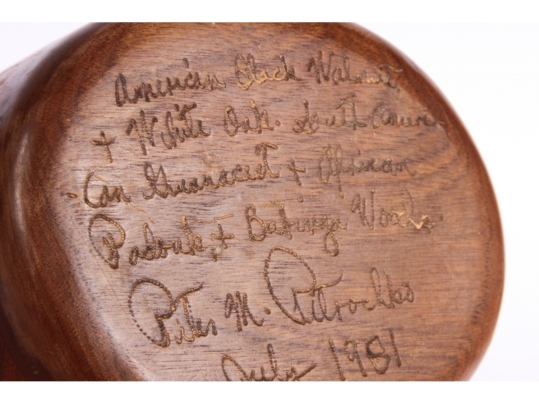 American Black Walnut
+ White Oak. South Ameri-
-can & African
Padouk, + Wood
Peter M. Petrochko
July 1981